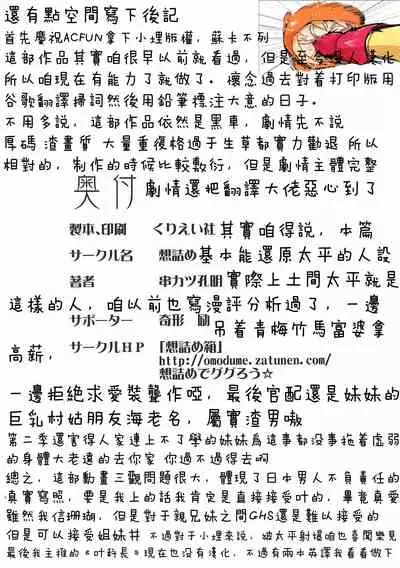 還有點空間寫下後記
首先慶祝ACFUN拿下小埋版權，蘇卡不列
這部作品其實咱很早以前就看過，但是至今 漢化
所以咱現在有能力了就做了。懷念過去對着打印版用
谷歌翻譯掃詞然後用鉛筆標注大意的日子。
不用多說，這部作品依然是黑車，劇情先不說
厚碼 渣畫質 大量重復格過于生草都實力勸退 所以
相對的，制作的時候比較敷衍，但是劇情主體完整
奥付 劇情還把翻譯大佬惡心到了
製本、印刷 くりえい社 其實咱得說，本篇
サークル名 想詰め 基本能還原太平的人設
著者 串カツ孔明 實際上土間太平就是
這樣的人，咱以前也寫漫評分析過了，一邊
サポーター 奇形 励 吊着青梅竹馬富婆拿
高薪，
サークルHP 「想詰め箱」
http://omodume.zatunen.com/
想詰めでググろう☆
一邊拒絶求愛裝聾作啞，最後官配還是妹妹的
巨乳村姑朋友海老名，屬實渣男嗷
第二季還害得人家連上不了學的妹妹爲這事都没事拖着虚弱
的身體大老遠的去你家 你過不過得去啊
總之，這部動畫三觀問題很大，體現了日本男人不負責任的
真實寫照，要是我上的話我肯定是直接接受叶的，畢竟真愛
雖然我信珊瑚，但是對于親兄妹之間GHS還是難以接受的
但是可以接受姐妹丼 不過對于小埋來說，給太平射爆咱也喜聞樂見
最後我主推的《叶科長》現在也没有漢化，不過有兩本英譯我看看做下